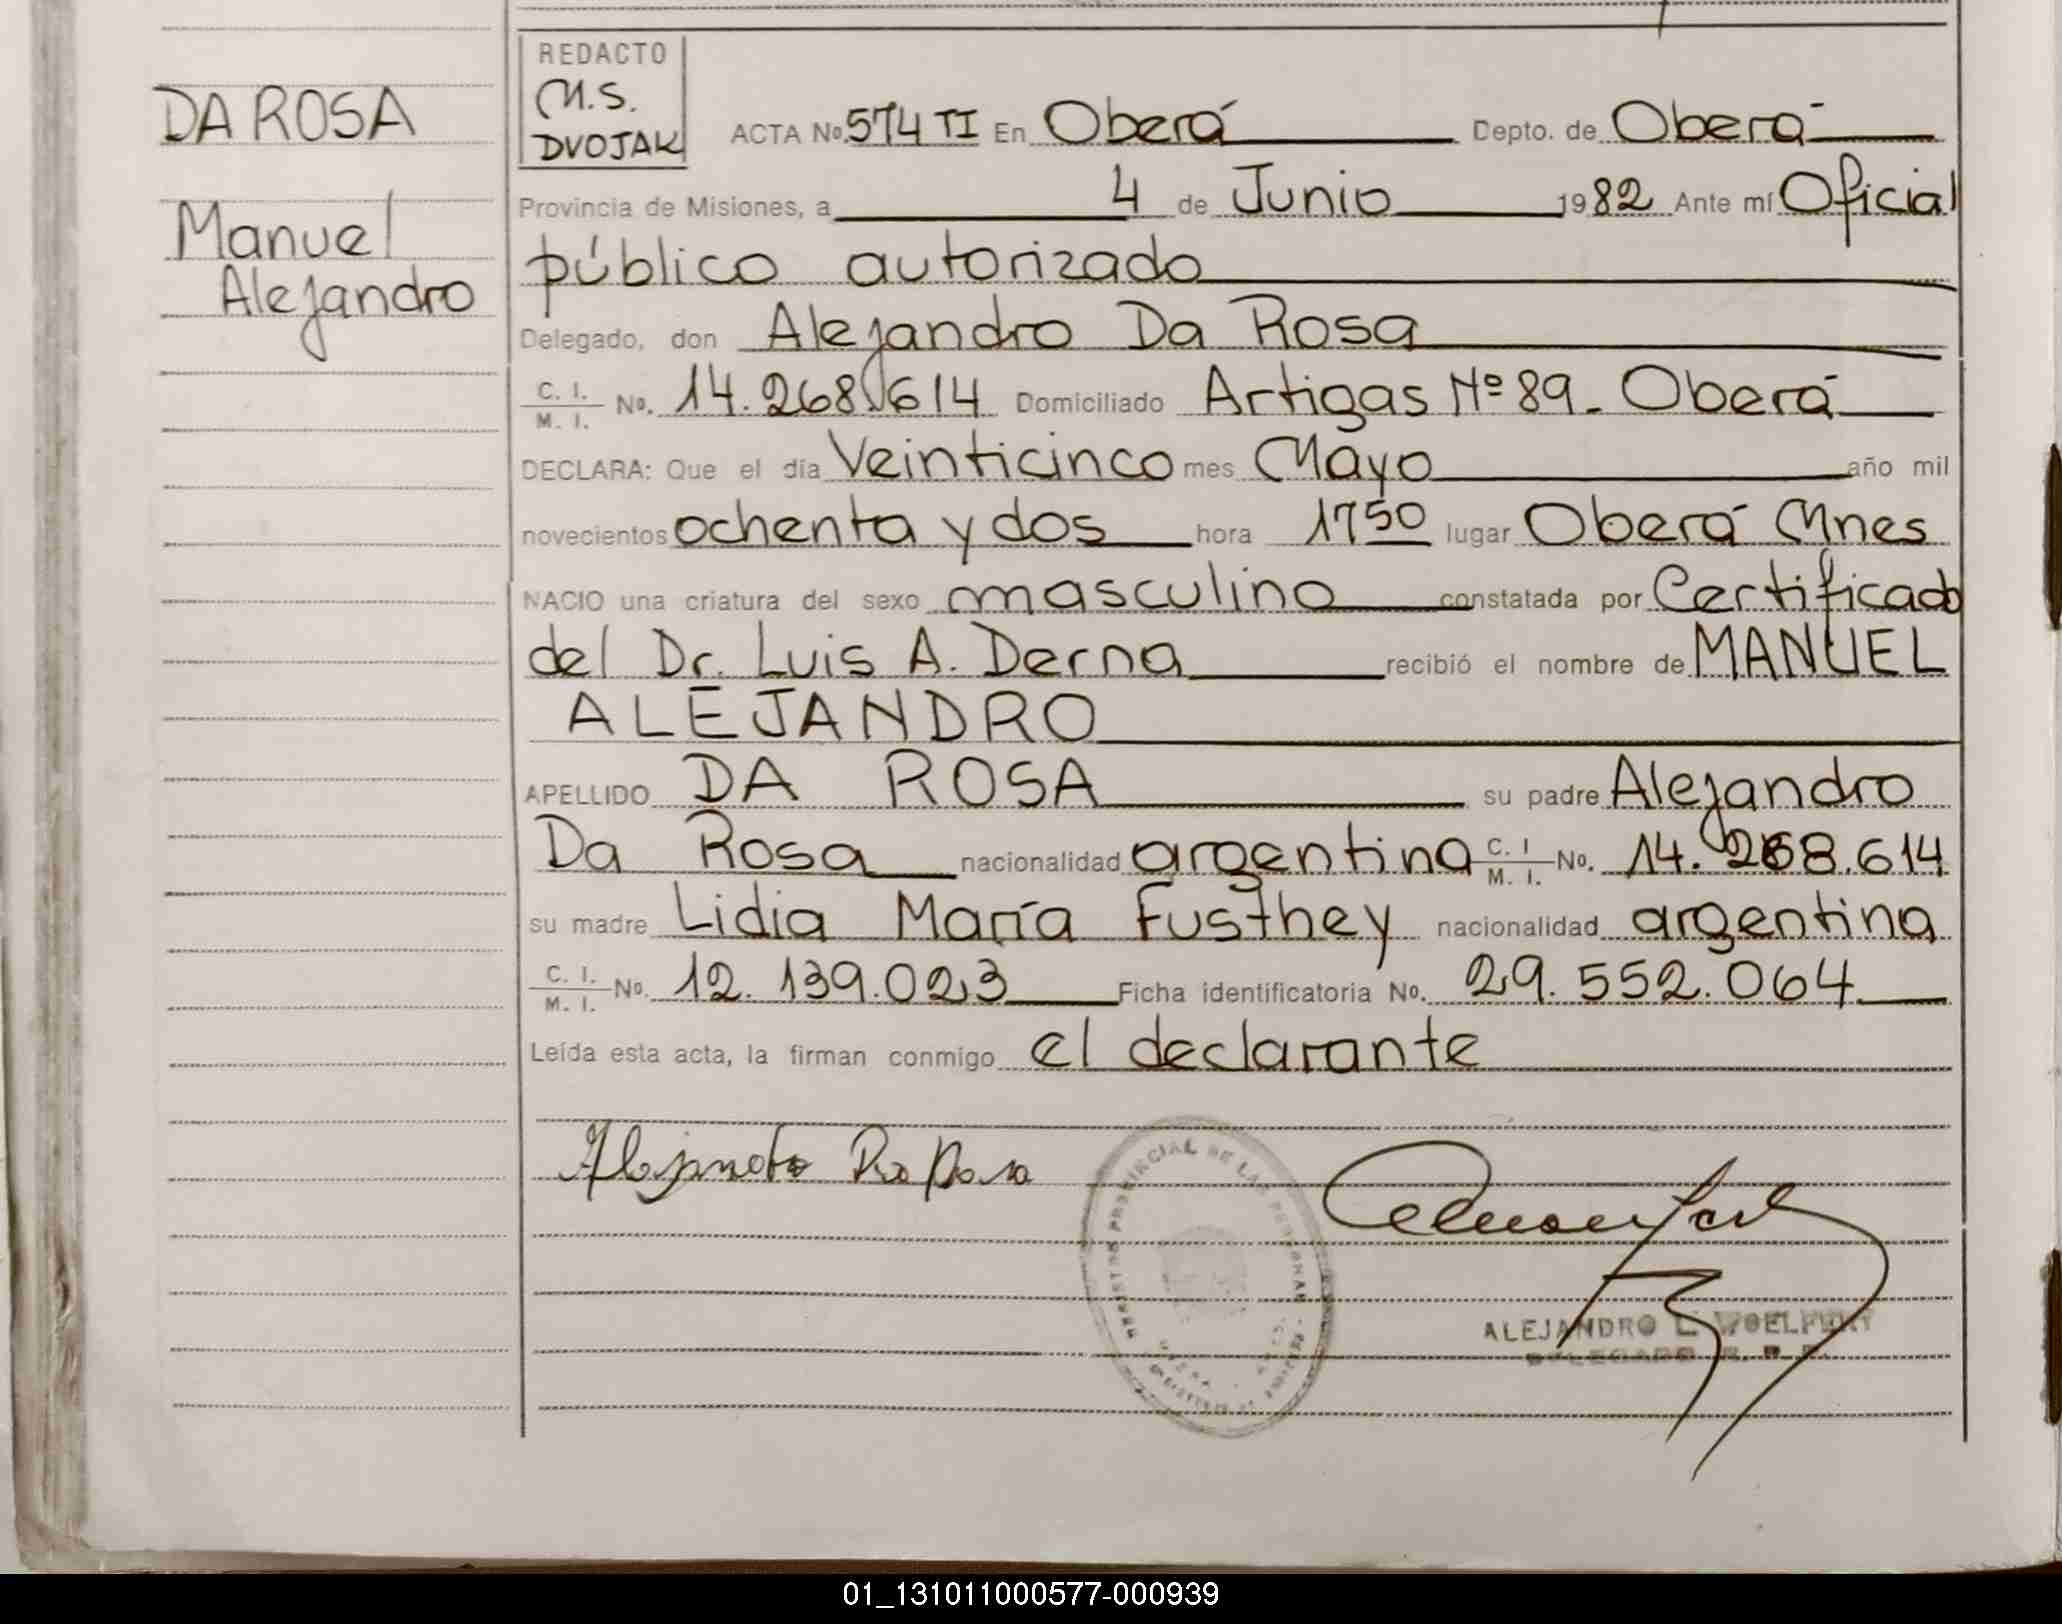 DA ROSA
Manuel
Alejandro
REDACTO
M.S.
DVOJAK
ACTA No. 574 TI En Oberá Depto. de Oberá
Provincia de Misiones, a 4 de Junio 1982 Ante mí Oficial
público autorizado
Delegado, don Alejandro Da Rosa
C. I. M. I. No. 14.268.614 Domiciliado Artigas Nº 89. Oberá
DECLARA: Que el día Veinticinco mes Mayo año mil
novecientos ochenta y dos hora 1750 lugar Oberá Mnes
NACIO una criatura del sexo masculino constatada por Certificado
del Dr. Luis A. Derna recibió el nombre de MANUEL
ALEJANDRO
APELLIDO DA ROSA su padre Alejandro
Da Rosa nacionalidad argentina C. I M. I. No. 14.268.614
su madre Lidia María Fusthey nacionalidad argentina
C. I. M. I. No. 12.139.023 Ficha identificatoria No. 29.552.064
Leída esta acta, la firman conmigo el declarante
Alejandro Da Rosa
PROVINCIAL DE LAS PERSONAS
ALEJANDRO L.
DELEGADO
01_131011000577-000939